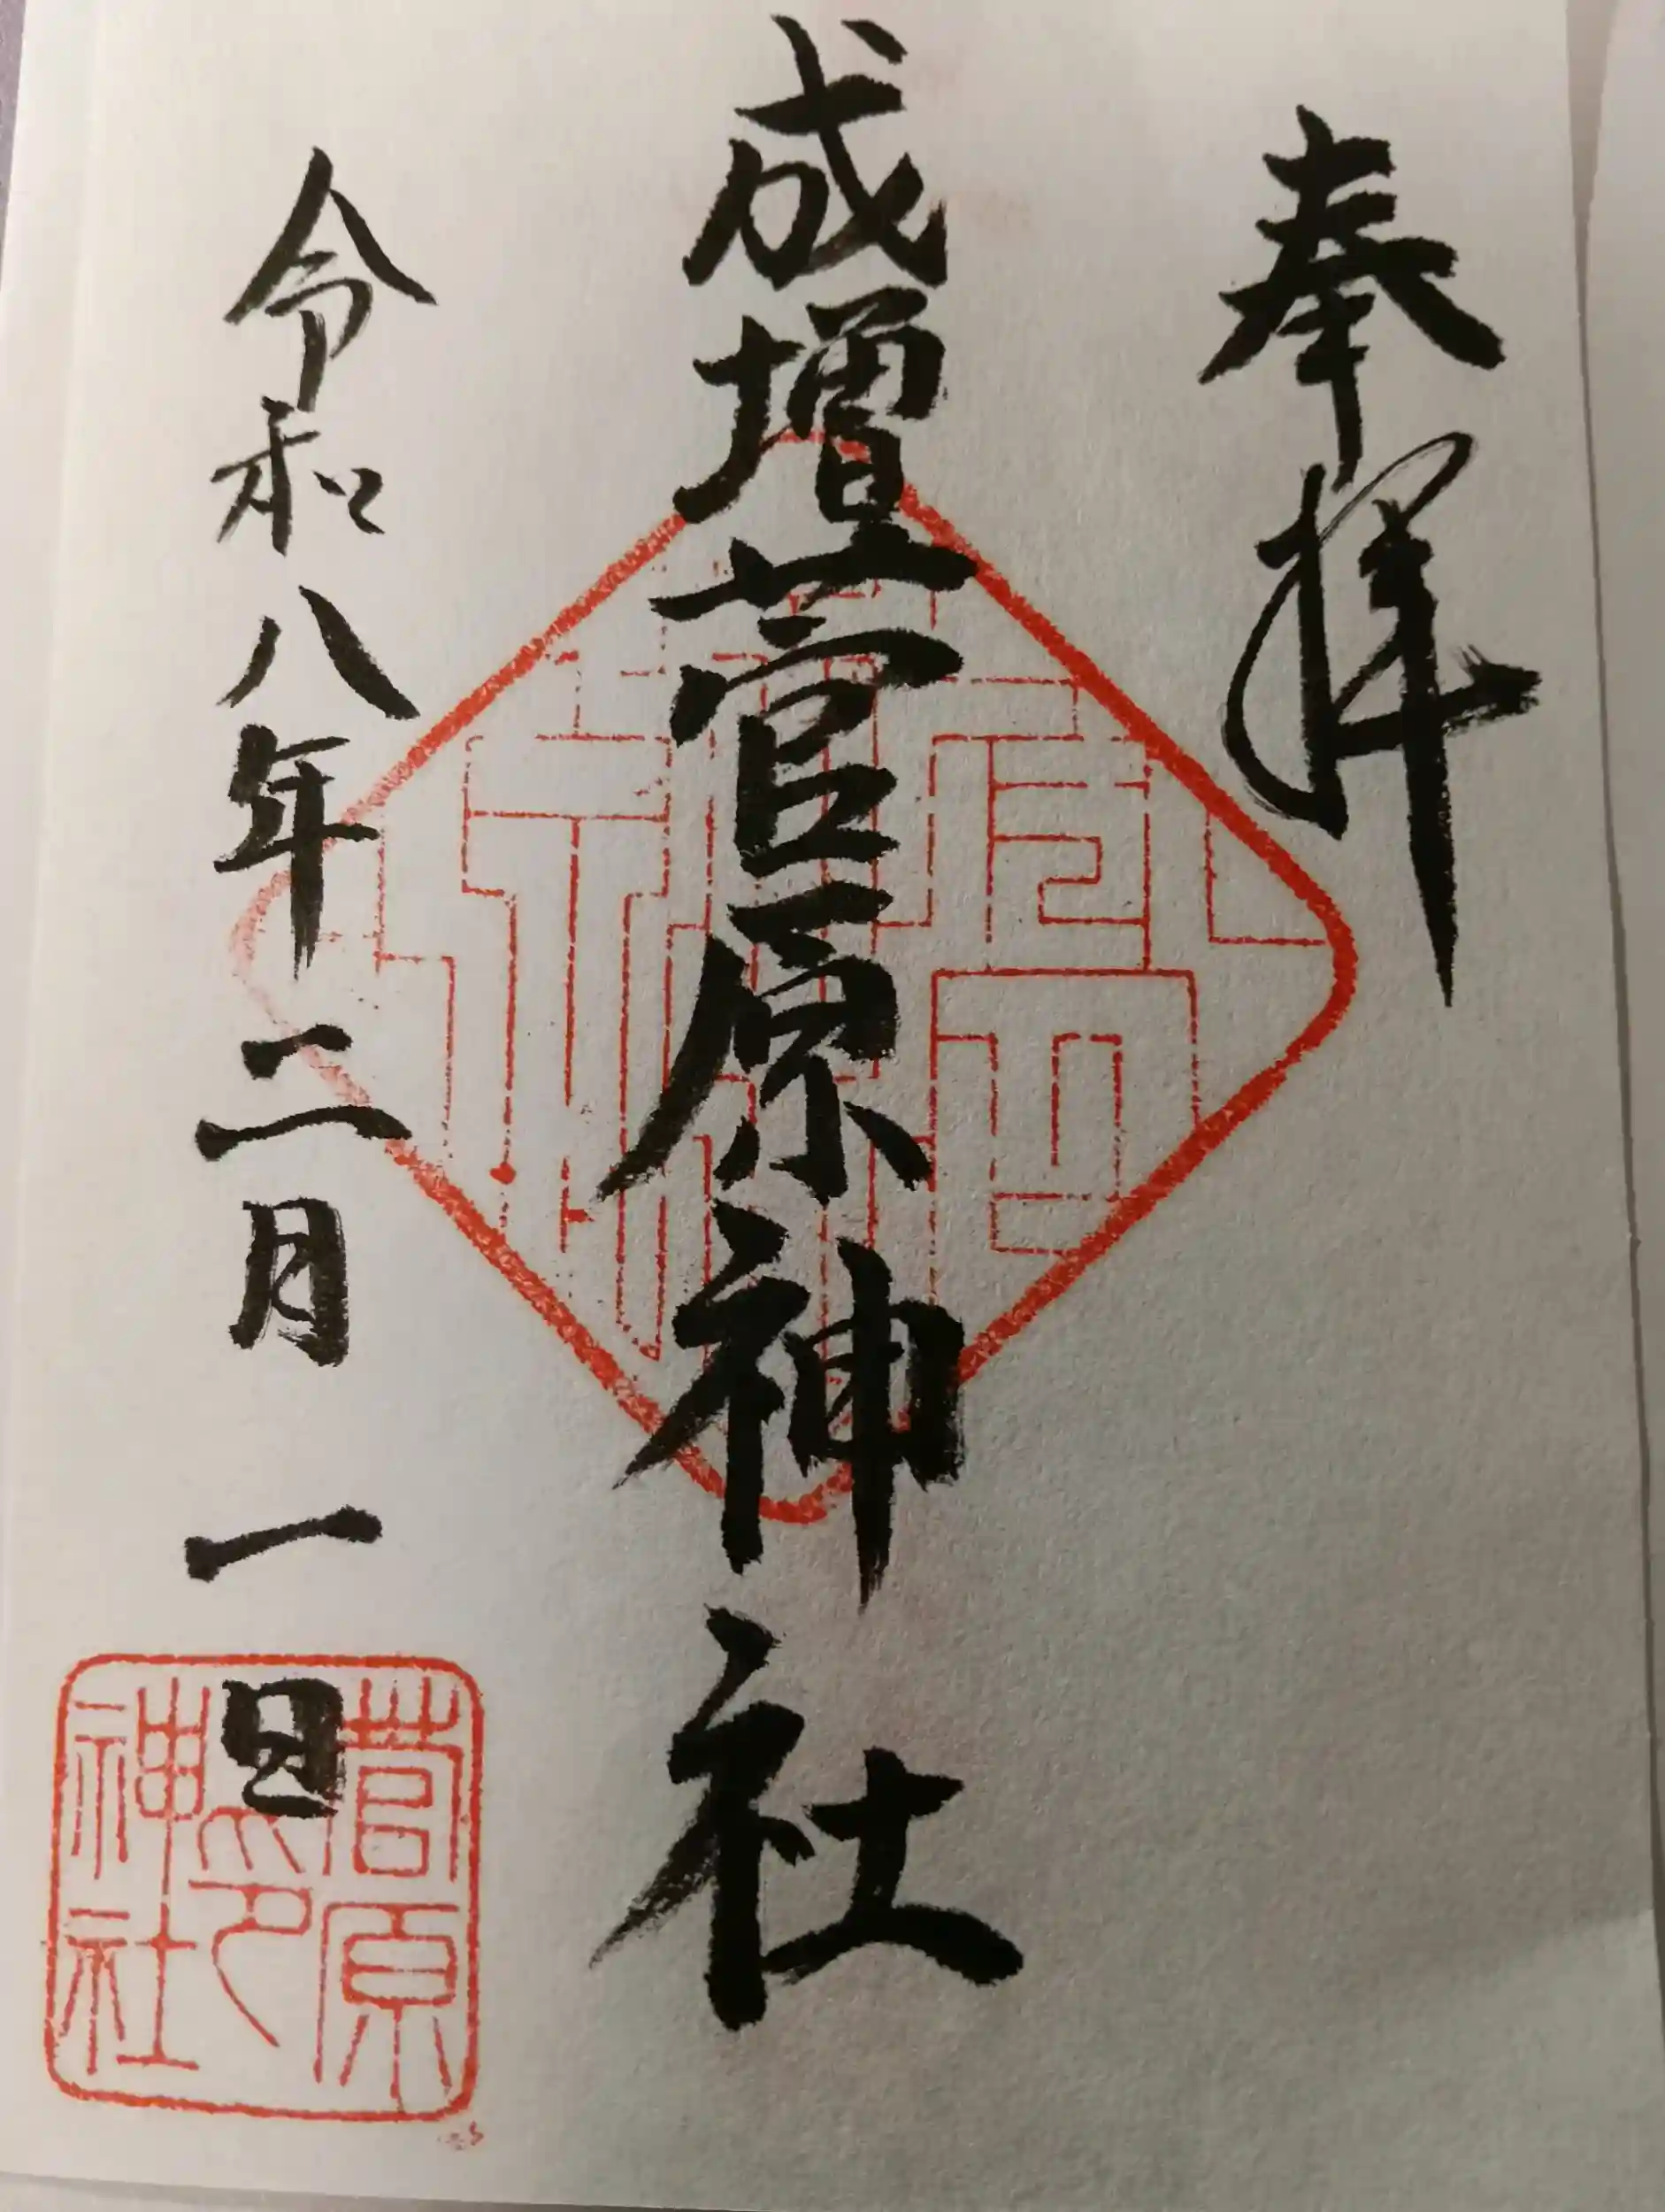 奉拝
成増菅原神社
令和八年二月一日
菅原
之印
神社